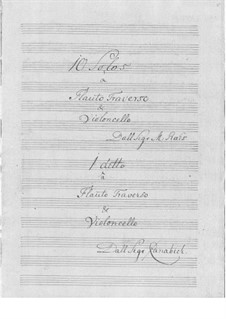 10 Solos
a
Flauto Traverso
&
Violoncello
Dall Sigr M.
1 detto
a
Flauto Traverso
&
Violoncello
Dall Sigr Canabich